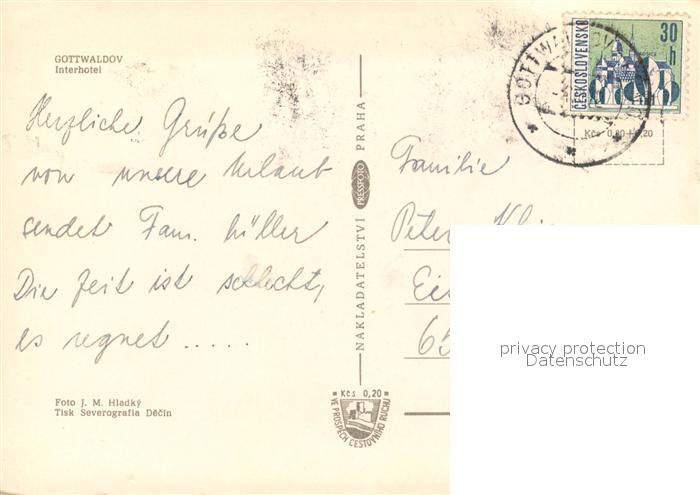 GOTTWALDOV
Interhotel
Herzliche Grüße
von unsere Urlaub
sendet Fam. Müller
Die Zeit ist schlecht,
es regnet.....
Foto J. M. Hladký
Tisk Severografia Děčín
NAKLADATELSTVÍ PRESSFOTO PRAHA
Kčs 0,20
VE PROSPĚCH CESTOVNÍHO RUCHU
GOTTWALDOV
ČESKOSLOVENSKO
30 h
Kčs 0,80 + 0,20
Familie
Peter
65
privacy protection
Datenschutz